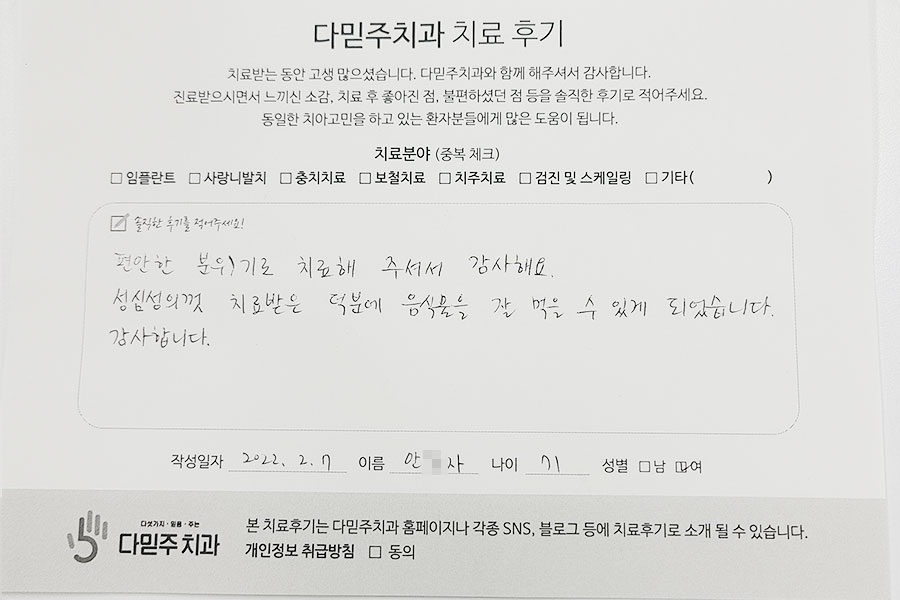 다믿주치과 치료 후기
치료받는 동안 고생 많으셨습니다. 다믿주치과와 함께 해주셔서 감사합니다.
진료받으시면서 느끼신 소감, 치료 후 좋아진 점, 불편하셨던 점 등을 솔직한 후기로 적어주세요.
동일한 치아고민을 하고 있는 환자분들에게 많은 도움이 됩니다.
치료분야 (중복 체크)
□ 임플란트 □ 사랑니발치 □ 충치치료 □ 보철치료 □ 치주치료 □ 검진 및 스케일링 □ 기타( )
솔직한 후기를 적어주세요!
편안한 분위기로 치료해 주셔서 감사해요.
성심성의껏 치료받은 덕분에 음식물을 잘 먹을 수 있게 되었습니다.
감사합니다.
작성일자 2022. 2. 7 이름 안 자 나이 71 성별 □남 □여
다섯가지·믿음·주는
다믿주치과
본 치료후기는 다믿주치과 홈페이지나 각종 SNS, 블로그 등에 치료후기로 소개 될 수 있습니다.
개인정보 취급방침 □ 동의